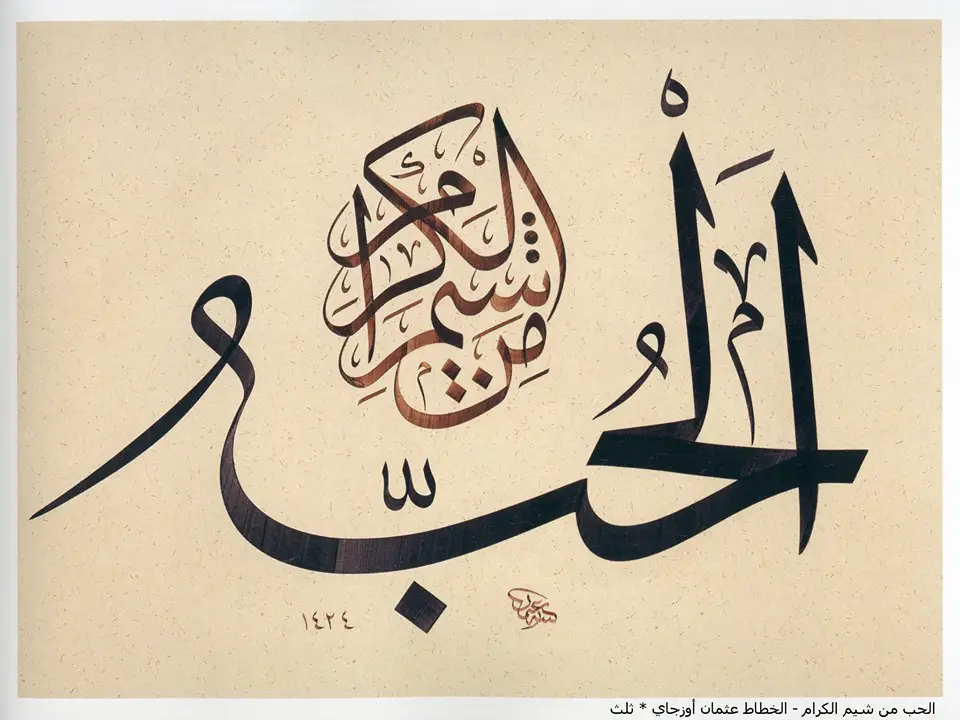 الحُبّ
من شيم الكرام
١٤٢٤
الحب من شيم الكرام - الخطاط عثمان أوزجاي * ثلث